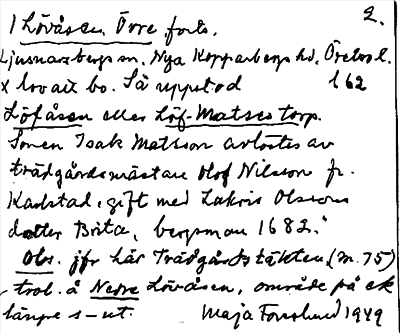 1 Lövåsen, Övre, forts. 2.
Ljusnarsbergs sn. Nya Kopparbergs hd. Örebro l.
x lovait bo. Så uppstod l 62
Löfåsen eller Löf-Matses torp.
Sonen Isak Mattson avlöstes av
trädgårdsmästare Olof Nilsson fr.
Karlstad, gift med Lakris Olssons
dotter Brita, bergsman 1682."
Obs. jfr här Trädgårdstäkten (m. 75)
trol. å Nedre Lövåsen, område på ek
längre s-ut. Maja Forslund 1949